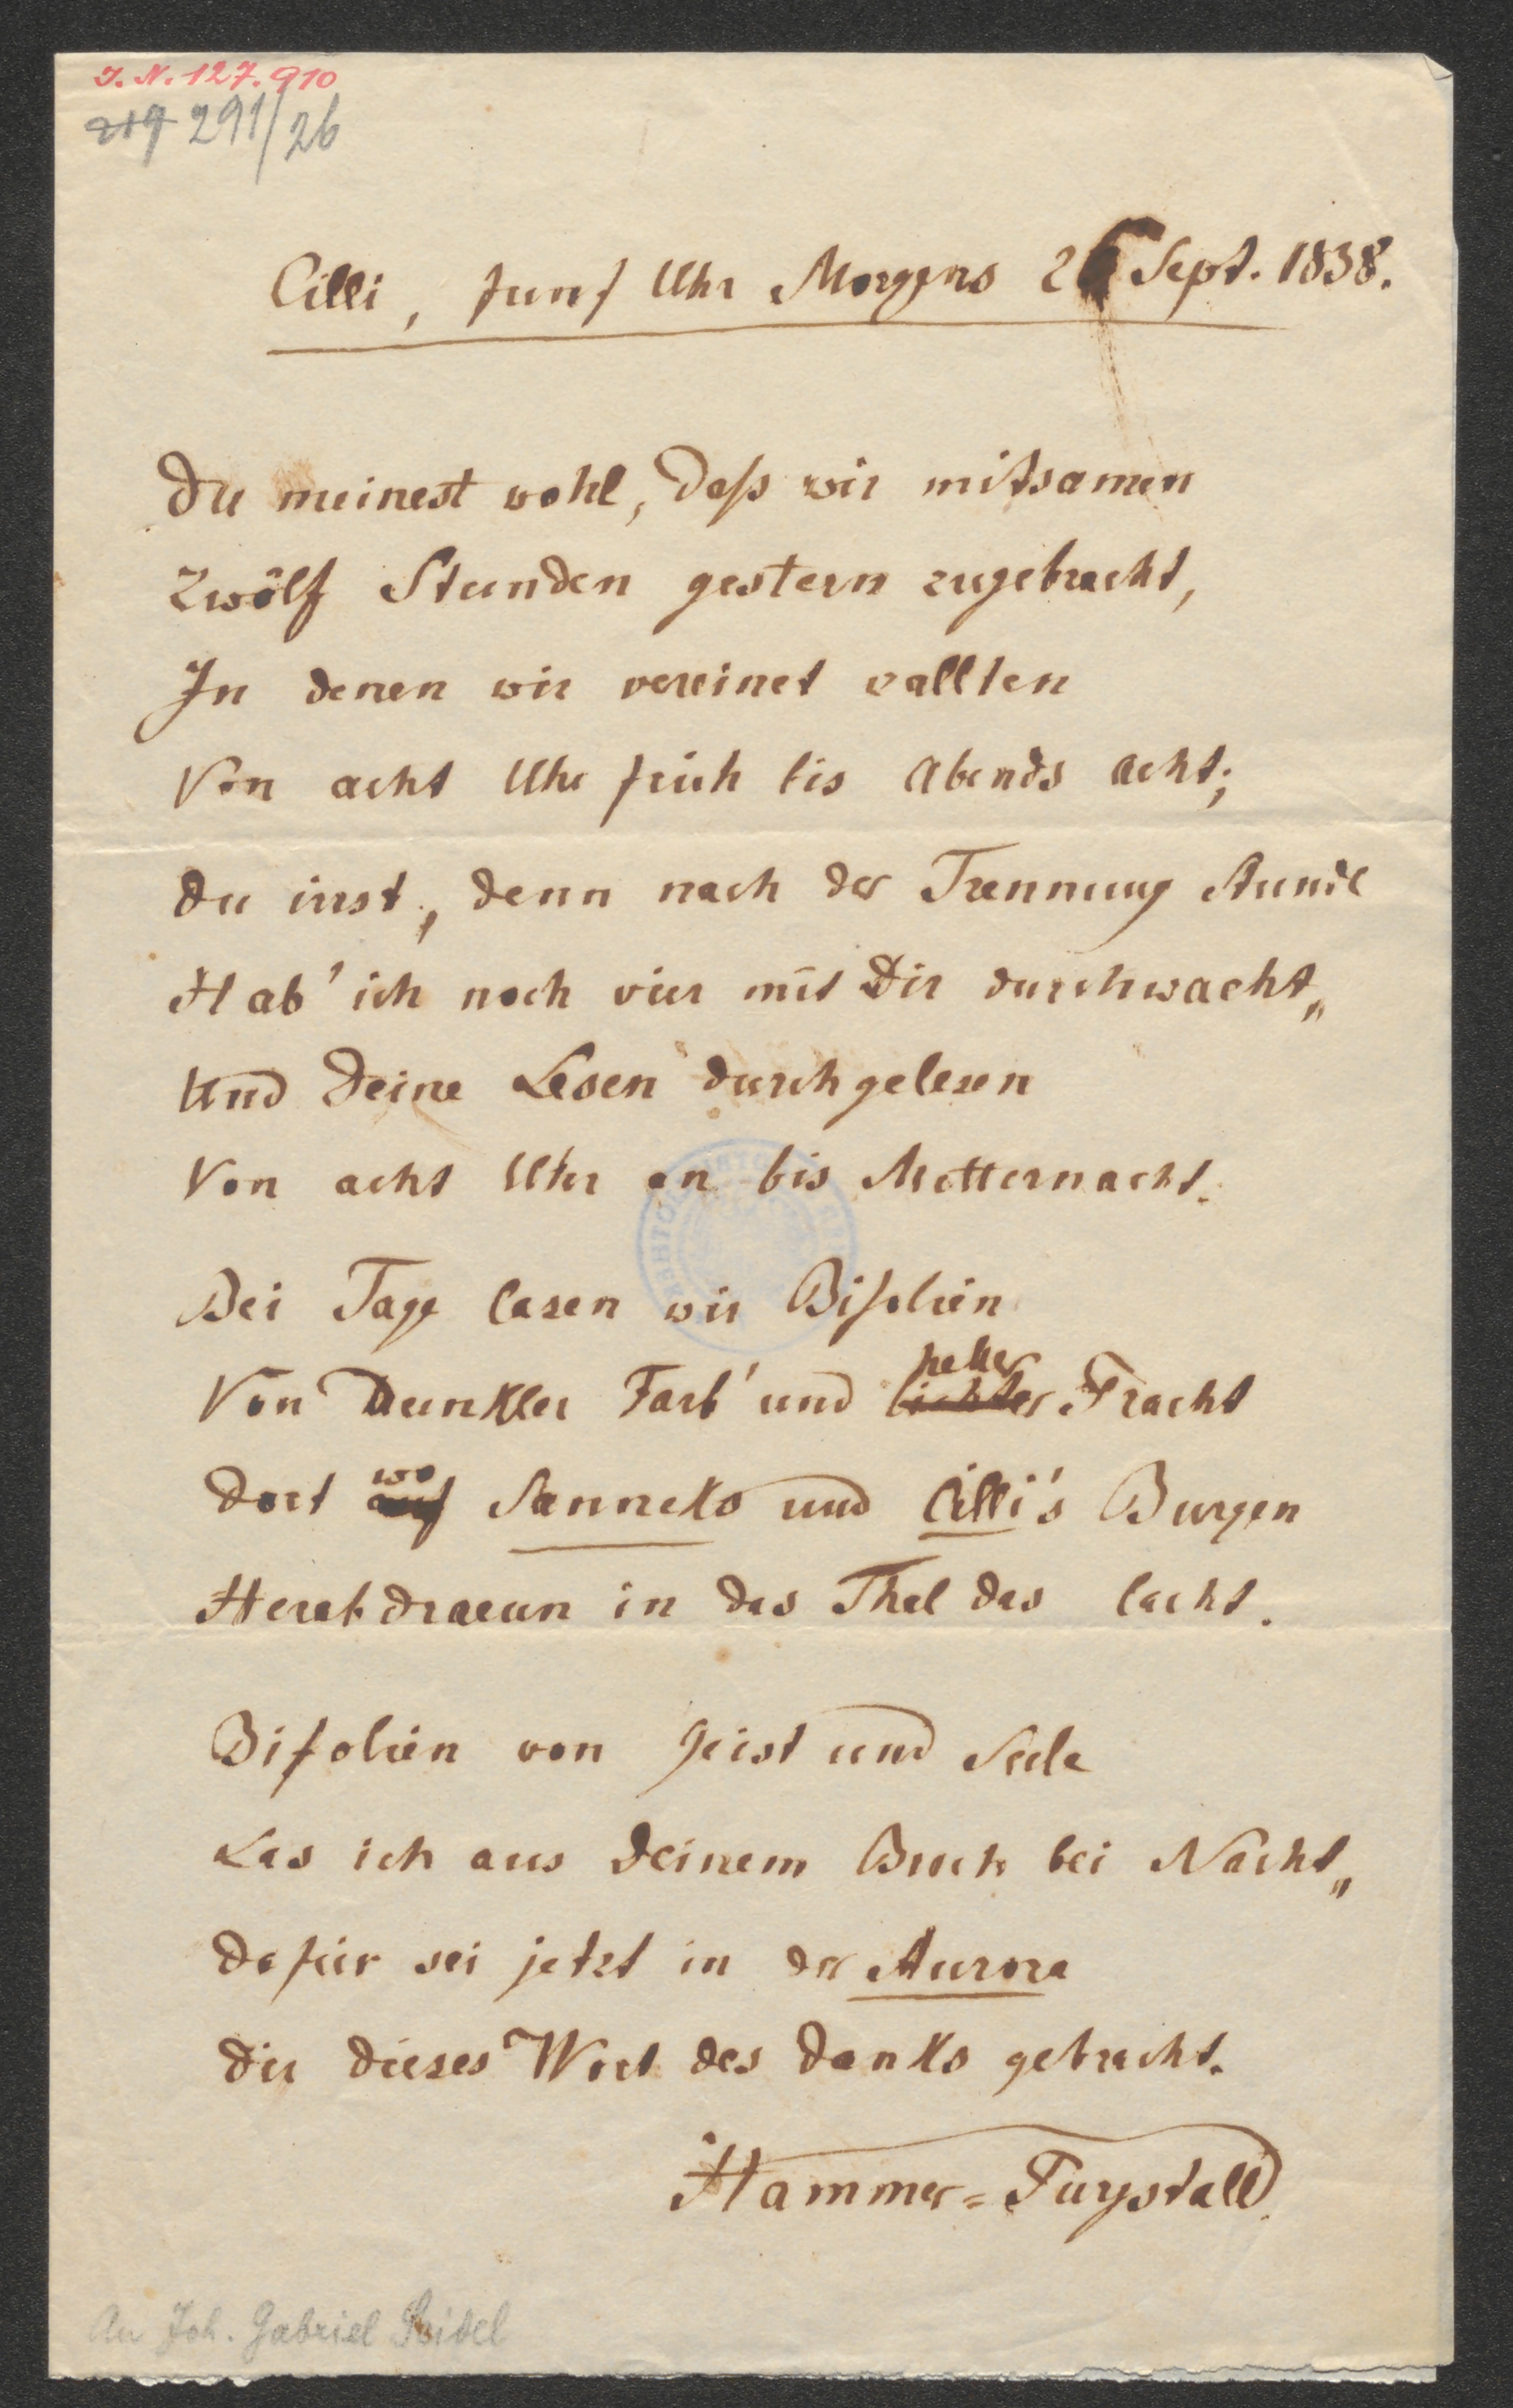 J. N. 127.910
219 291/26
Cilli, funf Uhr Morgens 26 Sept. 1838.
Du meinest wohl, daß wir mitsamen
Zwölf Stunden gestern zugebracht,
In denen wir vereinet wallten
Von acht Uhr früh bis Abends acht;
Du irrst, denn nach der Trennung Stunde
Hab' ich noch vier mit Dir durchwacht,,
Und Deine Lesen durchgelesen
Von acht Uhr an bis Mitternacht.
Bei Tage lasen wir Bifolien
Von Dunkler Farb' und lichter heller Tracht
Dort auf wo Sanneks und Cilli's Burgen
Herabdraeun in das Thal das lacht.
Bifolien von Geist und Seele
Las ich aus Deinem Buch bei Nacht,,
Dafür sei jetzt in der Aurora
Dir dieses Wort des Danks gebracht.
Hammer=Purgstall
An Joh. Gabriel Seidel